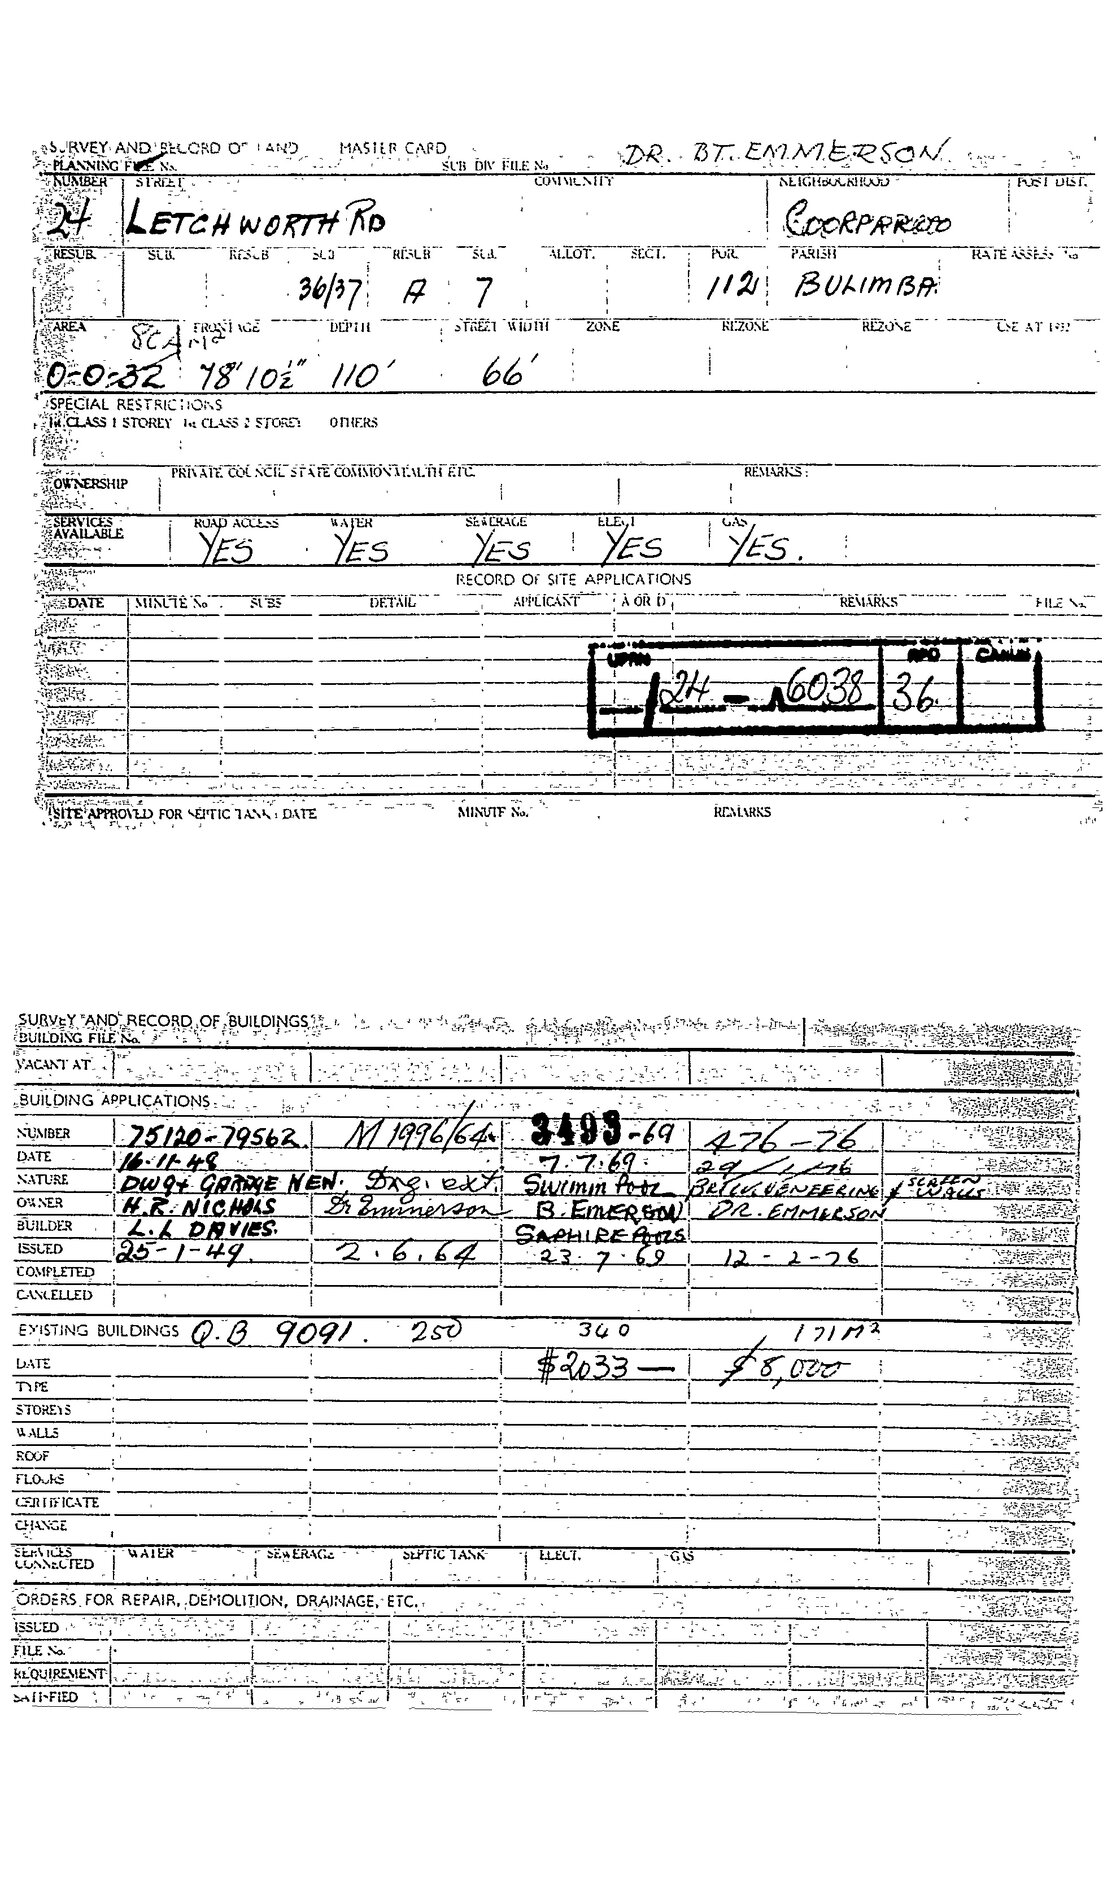 SURVEY AND RECORD OF LAND MASTER CARD DR. BT. EMMERSON
PLANNING FILE No. SUB DIV FILE No
NUMBER STREET COMMUNITY NEIGHBOURHOOD POST DIST.
24 LETCHWORTH RD COORPAROO
RESUB. SUB. RESUB SUB RESUB SUB. ALLOT. SECT. POR. PARISH RATE ASSESS No
36/37 A 7 112 BULIMBA
AREA FRONTAGE DEPTH STREET WIDTH ZONE REZONE REZONE USE AT
0-0-32 78' 10½" 110' 66'
SPECIAL RESTRICTIONS
1st CLASS 1 STOREY 1st CLASS 2 STOREY OTHERS
OWNERSHIP PRIVATE COUNCIL STATE COMMONWEALTH ETC. REMARKS:
SERVICES AVAILABLE ROAD ACCESS WATER SEWERAGE ELECT GAS
YES YES YES YES YES.
RECORD OF SITE APPLICATIONS
DATE MINUTE No SUBS DETAIL APPLICANT A OR D REMARKS FILE No
UPRN RPD CANUM
24 - 6038 36
SITE APPROVED FOR SEPTIC TANK: DATE MINUTE No. REMARKS
SURVEY AND RECORD OF BUILDINGS
BUILDING FILE No.
VACANT AT
BUILDING APPLICATIONS
NUMBER 75120-79562 M1996/64 3493-69 476-76
DATE 16-11-48 7.7.69. 29/1/76
NATURE DWG+ GARAGE NEW. Dwg. ext. Swimin Pool BRICK VENEERING & SCREEN WALLS
OWNER H.R. NICHOLS Dr Emmerson B. EMERSON DR. EMMERSON
BUILDER L.L DAVIES. SAPHIRE POOLS
ISSUED 25-1-49. 2.6.64 23.7.69 12-2-76
COMPLETED
CANCELLED
EXISTING BUILDINGS Q.B 9091. 250 340 171M²
DATE $2033— $8,000
TYPE
STOREYS
WALLS
ROOF
FLOORS
CERTIFICATE
CHANGE
SERVICES CONNECTED WATER SEWERAGE SEPTIC TANK ELECT. GAS
ORDERS FOR REPAIR, DEMOLITION, DRAINAGE, ETC.
ISSUED
FILE No.
REQUIREMENT
SATISFIED